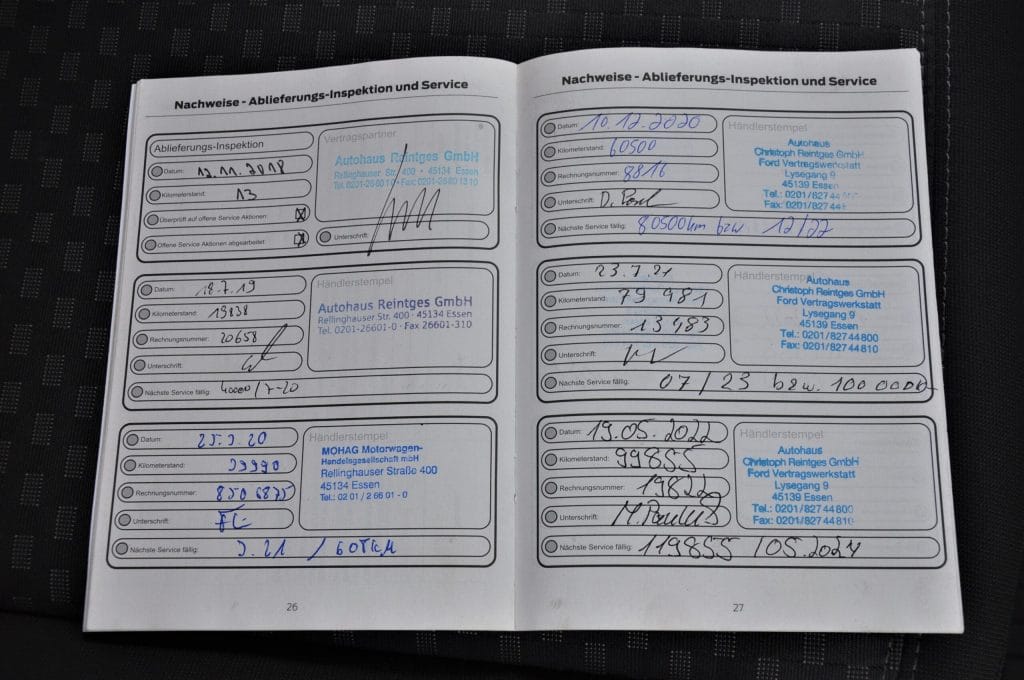 Nachweise - Ablieferungs-Inspektion und Service
Ablieferungs-Inspektion
Datum: 12.11.2018
Kilometerstand: 13
Überprüft auf offene Service Aktionen:
Offene Service Aktionen abgearbeitet:
Vertragspartner
Autohaus Reintges GmbH
Rellinghauser Str. 400 · 45134 Essen
Tel. 0201-26601-0 · Fax 0201-26601310
Unterschrift:
Datum: 18.7.19
Kilometerstand: 19838
Rechnungsnummer: 20658
Unterschrift:
Nächste Service fällig: 40000/7-20
Händlerstempel
Autohaus Reintges GmbH
Rellinghauser Str. 400 · 45134 Essen
Tel. 0201-26601-0 · Fax 26601-310
Datum: 25.3.20
Kilometerstand: 39990
Rechnungsnummer: 8506875
Unterschrift:
Nächste Service fällig: 3.21 / 60TKM
Händlerstempel
MOHAG Motorwagen-
Handelsgesellschaft mbH
Rellinghauser Straße 400
45134 Essen
Tel.: 02 01 / 2 66 01 - 0
26
Nachweise - Ablieferungs-Inspektion und Service
Datum: 10.12.2020
Kilometerstand: 60500
Rechnungsnummer: 8816
Unterschrift:
Nächste Service fällig: 80500km bzw 12/22
Händlerstempel
Autohaus
Christoph Reintges GmbH
Ford Vertragswerkstatt
Lysegang 9
45139 Essen
Tel.: 0201/827 44
Fax: 0201/827 44 8
Datum: 23.7.21
Kilometerstand: 79981
Rechnungsnummer: 13983
Unterschrift:
Nächste Service fällig: 07/23 bzw. 100 000
Händlerstempel
Autohaus
Christoph Reintges GmbH
Ford Vertragswerkstatt
Lysegang 9
45139 Essen
Tel.: 0201/827 44 800
Fax: 0201/827 44 810
Datum: 19.05.2022
Kilometerstand: 99855
Rechnungsnummer: 19822
Unterschrift: M. Paulus
Nächste Service fällig: 119855 / 05.2024
Händlerstempel
Autohaus
Christoph Reintges GmbH
Ford Vertragswerkstatt
Lysegang 9
45139 Essen
Tel.: 0201/827 44 800
Fax: 0201/827 44 810
27